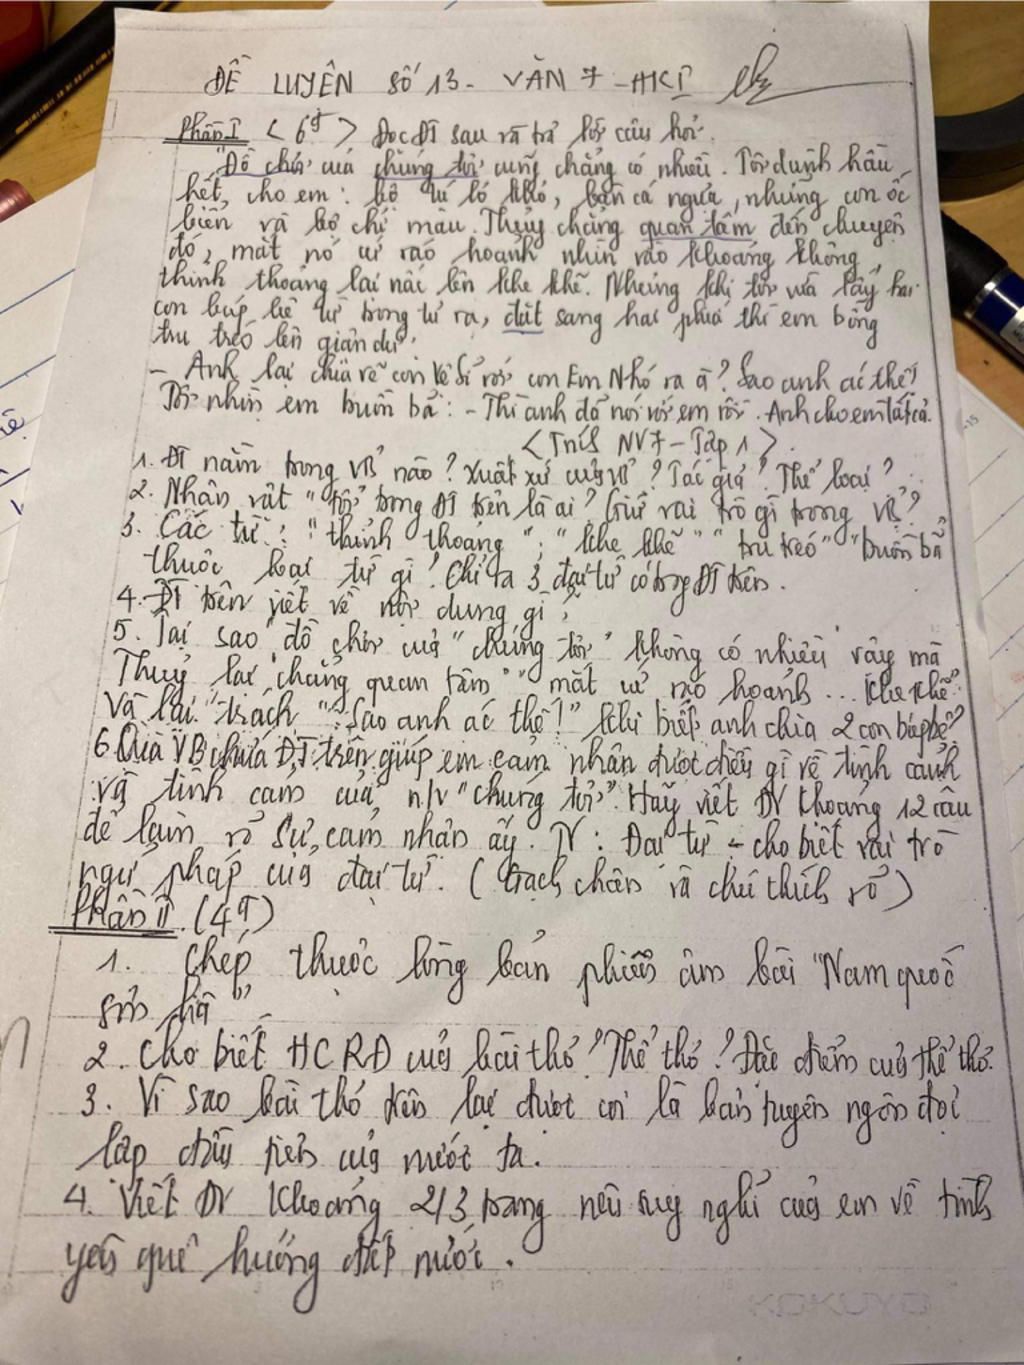 ĐỀ LUYỆN SỐ 13 - VĂN 7 - HKI
Phần I <6đ> Đọc ĐT sau và trả lời câu hỏi.
"Đồ chơi của chúng tôi cũng chẳng có nhiều. Tôi dành hầu
hết cho em: bộ tú lơ khơ, bàn cá ngựa, những con ốc
biển và bộ chỉ màu. Thủy chẳng quan tâm đến chuyện
đó, mắt nó cứ ráo hoảnh nhìn vào khoảng không,
thỉnh thoảng lại nấc lên khe khẽ. Nhưng khi tôi vừa lấy hai
con búp bê từ trong tủ ra, đặt sang hai phía thì em bỗng
tru tréo lên giận dữ.
- Anh lại chia rẽ con Vệ Sĩ với con Em Nhỏ ra à? Sao anh ác thế!
Tôi nhìn em buồn bã: - Thì anh đã nói với em rồi. Anh cho em tất cả.
<Trích NV7 - Tập 1>.
1. ĐT nằm trong VB nào? Xuất xứ của VB? Tác giả? Thể loại?
2. Nhân vật "tôi" trong ĐT trên là ai? Giữ vai trò gì trong VB?
3. Các từ: "thỉnh thoảng"; "khe khẽ" "tru tréo" "buồn bã"
thuộc loại từ gì? Chỉ ra 3 đại từ có trong ĐT trên.
4. ĐT trên viết về nội dung gì?
5. Tại sao đồ chơi của "chúng tôi" không có nhiều vậy mà
Thuỷ lại "chẳng quan tâm" "mắt cứ ráo hoảnh... khe khẽ"
Và lại "trách": "Sao anh ác thế!" khi biết anh chia 2 con búp bê?
6. Qua VB chứa ĐT trên giúp em cảm nhận được điều gì về tình cảnh
và tình cảm của n/v "chúng tôi". Hãy viết ĐV khoảng 12 câu
để làm rõ sự cảm nhận ấy. TV: Đại từ - cho biết vai trò
ngữ pháp của đại từ. (Gạch chân và chú thích rõ)
Phần II. (4đ)
1. Chép thuộc lòng bản phiên âm bài "Nam quốc
sơn hà"
2. Cho biết HCRĐ của bài thơ? Thể thơ? Đặc điểm của thể thơ.
3. Vì sao bài thơ trên lại được coi là bản tuyên ngôn độc
lập đầu tiên của nước ta.
4. Viết ĐV khoảng 2/3 trang nêu suy nghĩ của em về tình
yêu quê hương đất nước.
KOKUYO